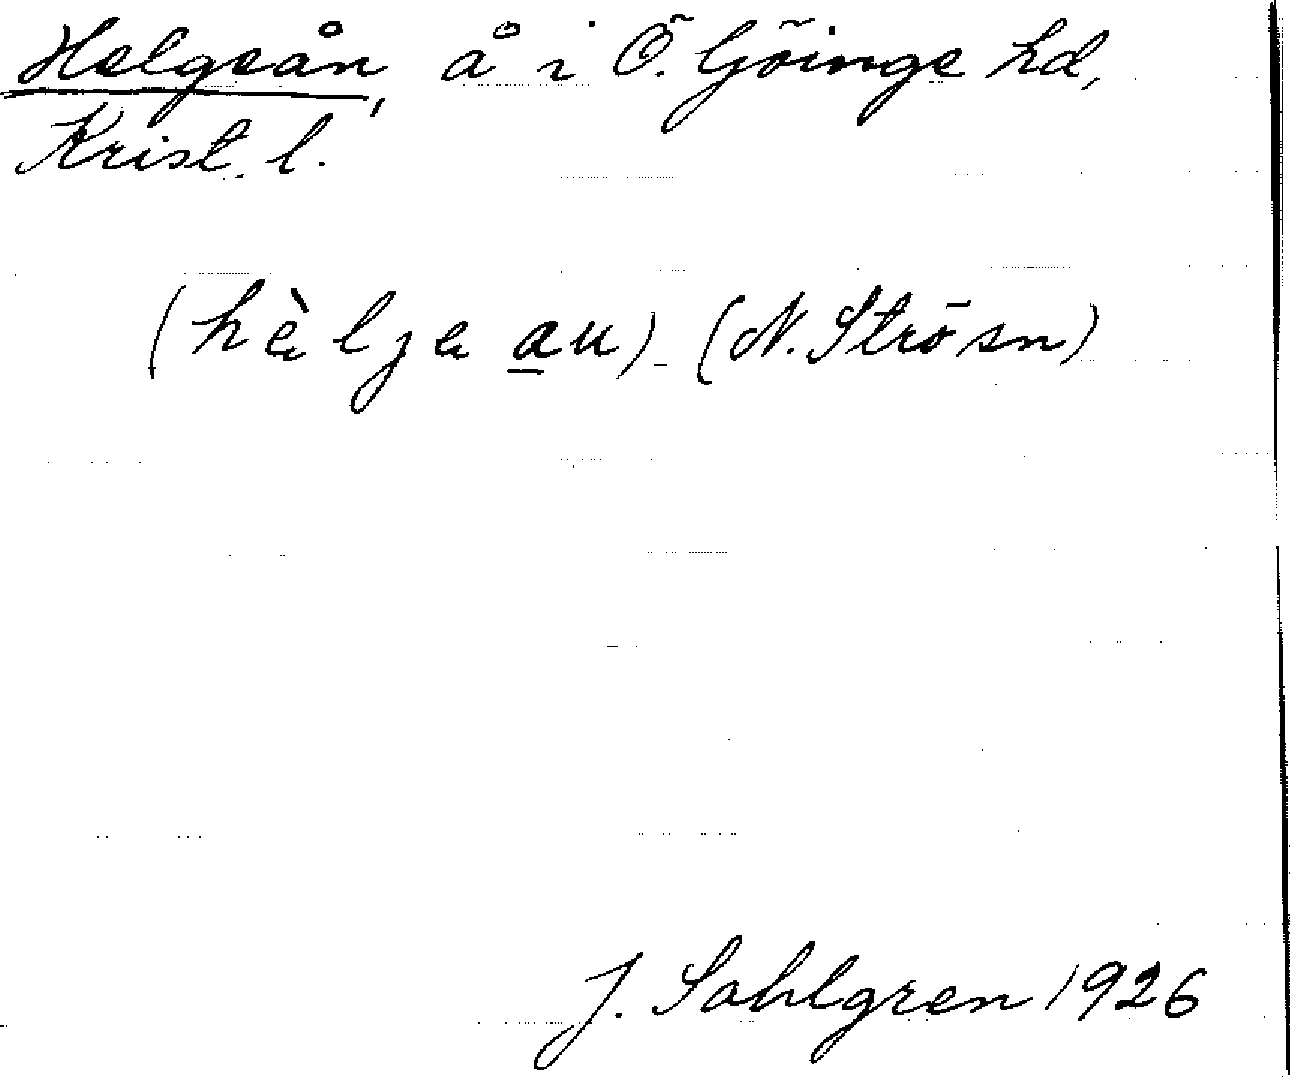 Helgeån, å i Ö. Göinge hd,
Krist. l.
(hæ̀ljæ au) (N. Strö sn)
J. Sahlgren 1926